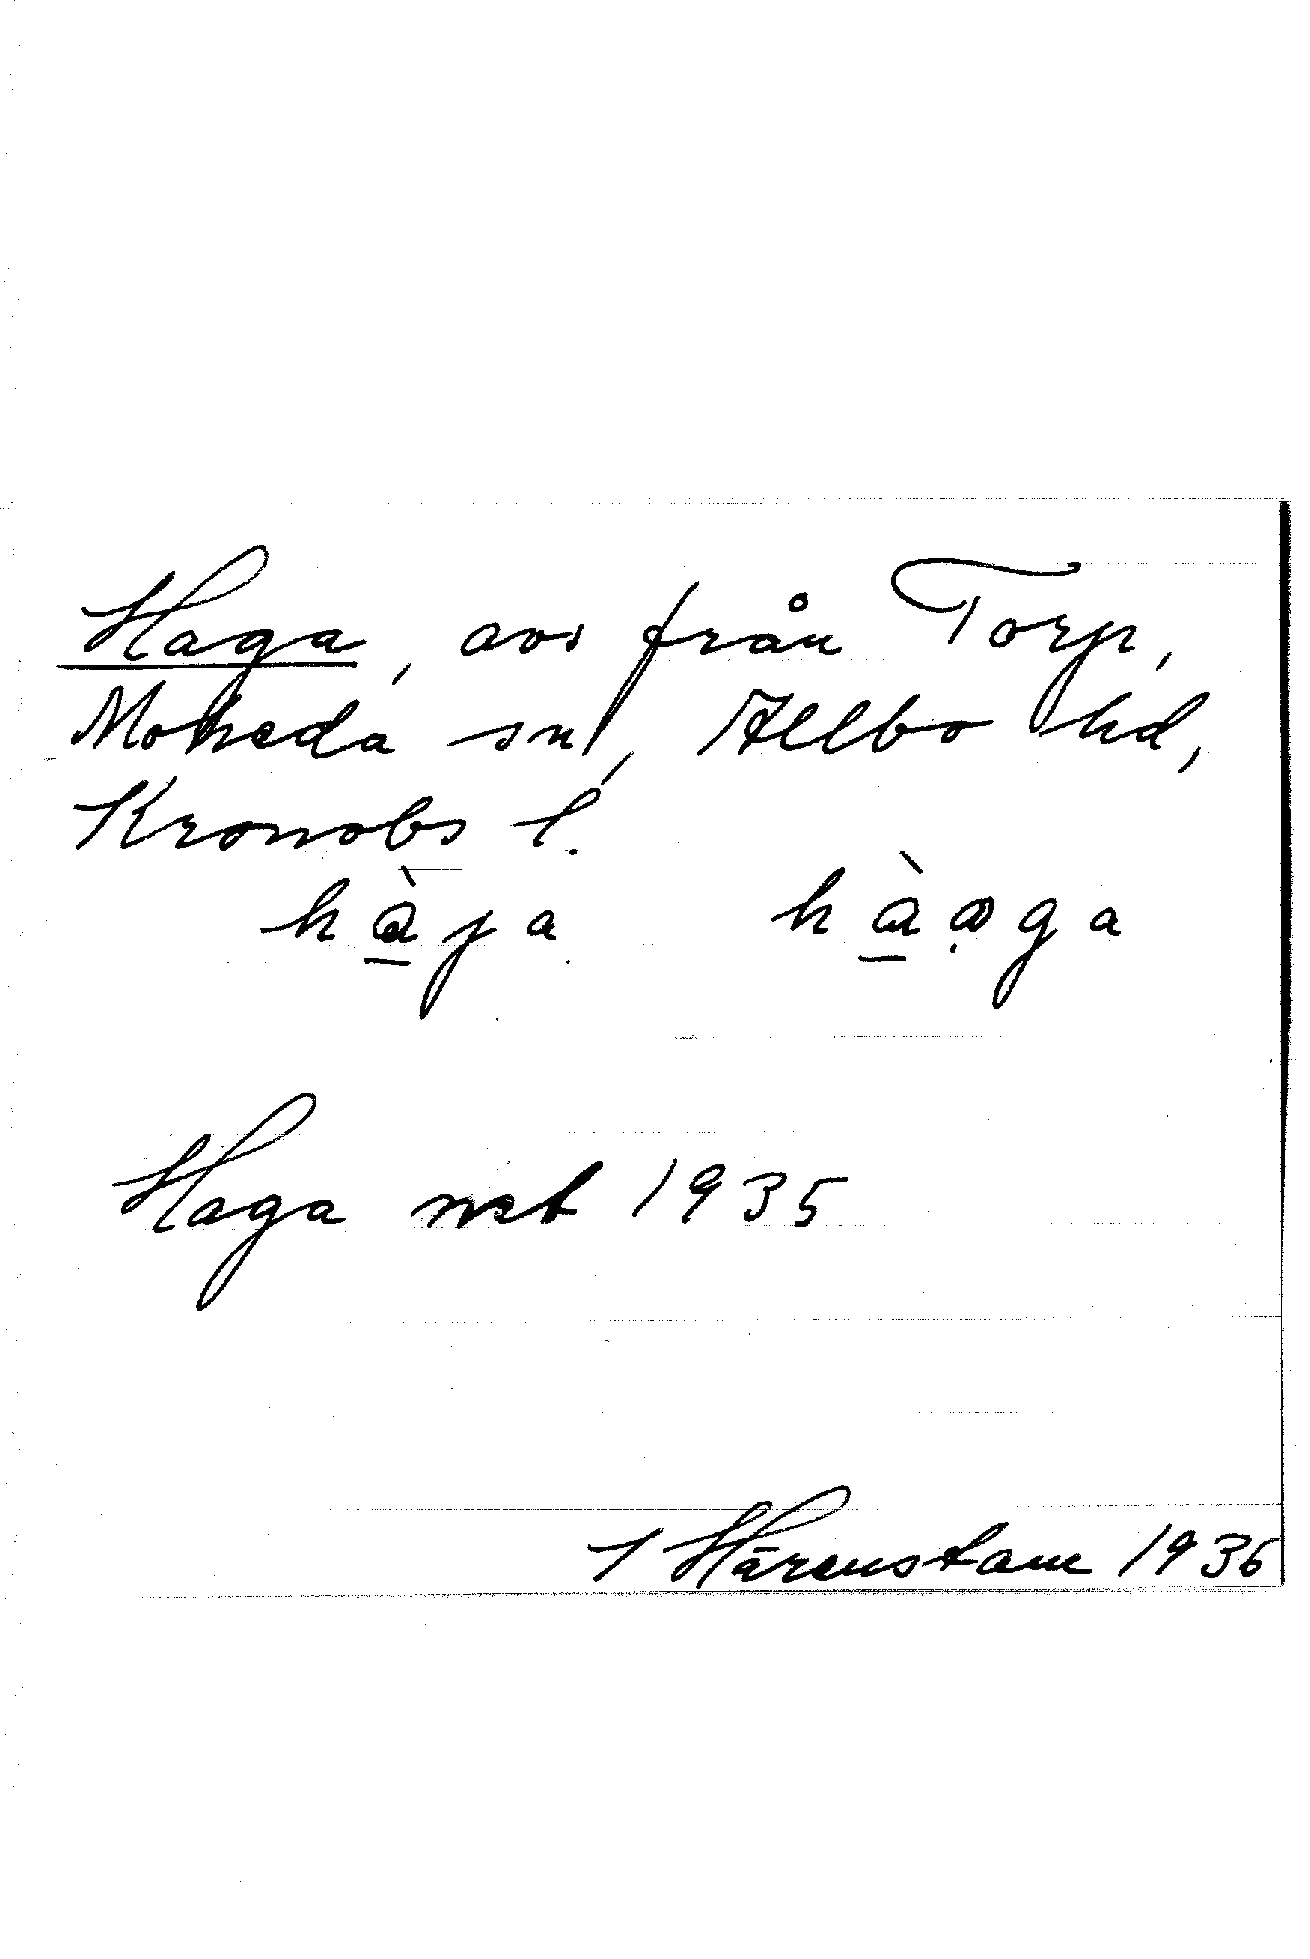 Haga, avs från Torp,
Moheda sn, Allbo hd,
Kronobs l.
hàja hàaga
Haga wet 1935
J Härenstam 1935